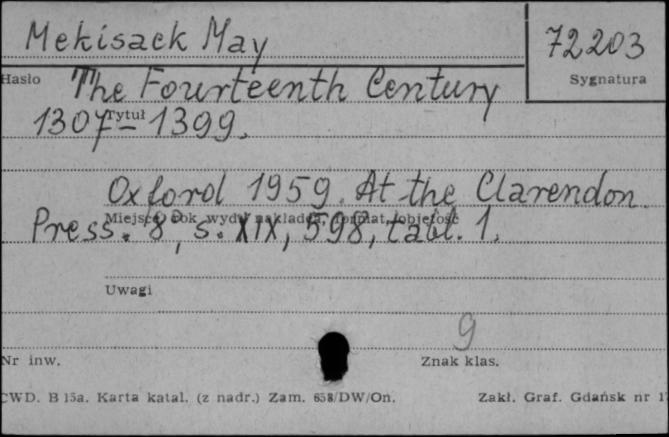 Mekisack May
72203
Hasło
Sygnatura
The Fourteenth Century
Tytuł
1307-1399.
Oxford 1959. At the Clarendon
Miejsce, rok wyd., nakładca, format, objętość
Press. 8°, s. XIX, 598, tabl. 1.
Uwagi
9
Nr inw.
Znak klas.
CWD. B 15a. Karta katal. (z nadr.) Zam. 658/DW/On.
Zakł. Graf. Gdańsk nr 1